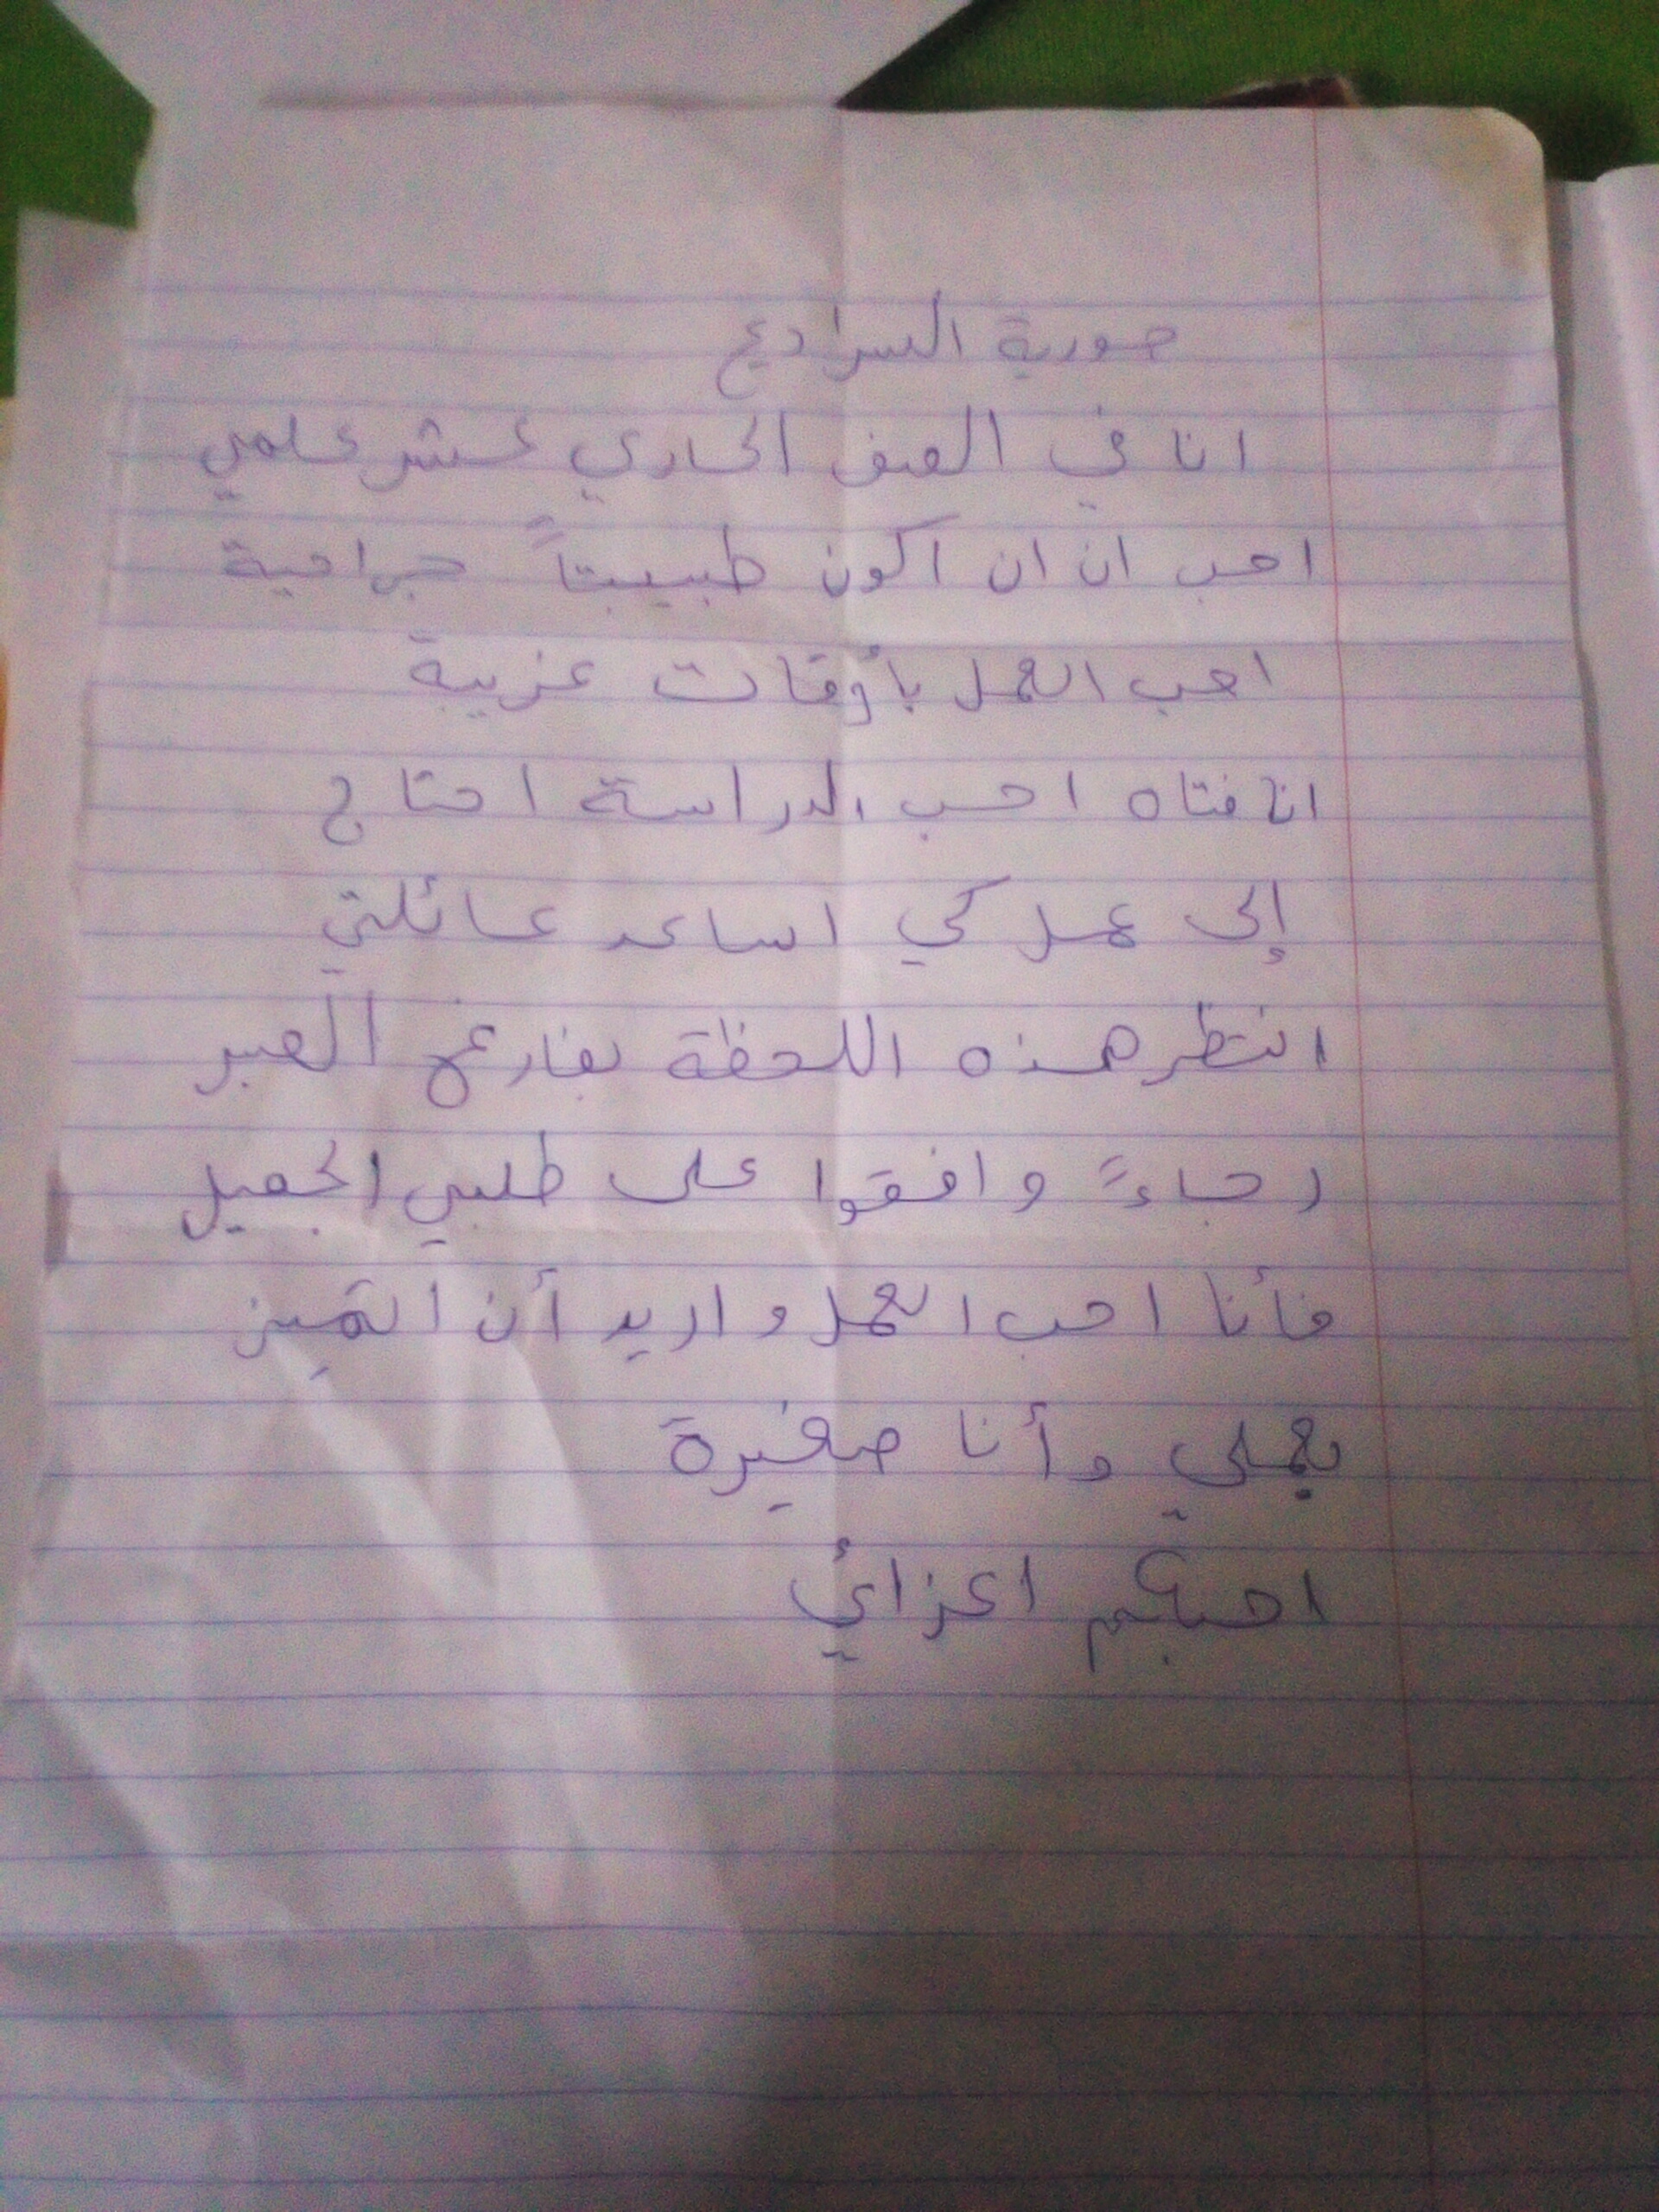 حورية السراديح
انا في الصف الحادي عشر علمي
احب ان ان اكون طبيبتاً جراحية
احب العمل بأوقات غريبة
انا فتاه احب الدراسة احتاج
إلى عمل كي اساعد عائلتي
انتظر هذه اللحظة بفارغ الصبر
رجاءً وافقوا على طلبي الجميل
فأنا احب العمل و اريد أن اتميز
بعملي وأنا صغيرة
احبكم اعزائي